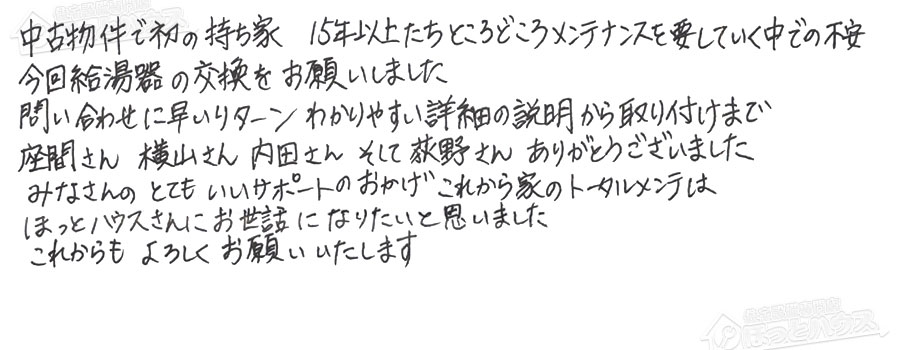 中古物件で初の持ち家 15年以上たちところどころメンテナンスを要していく中での不安
今回給湯器の交換をお願いしました
問い合わせに早いリターン わかりやすい詳細の説明から取り付けまで
座間さん 横山さん 内田さん そして荻野さん ありがとうございました
みなさんの とても いいサポートのおかげ これから家のトータルメンテは
ほっとハウスさんにお世話になりたいと思いました
これからも よろしく お願いいたします
ほっとハウス